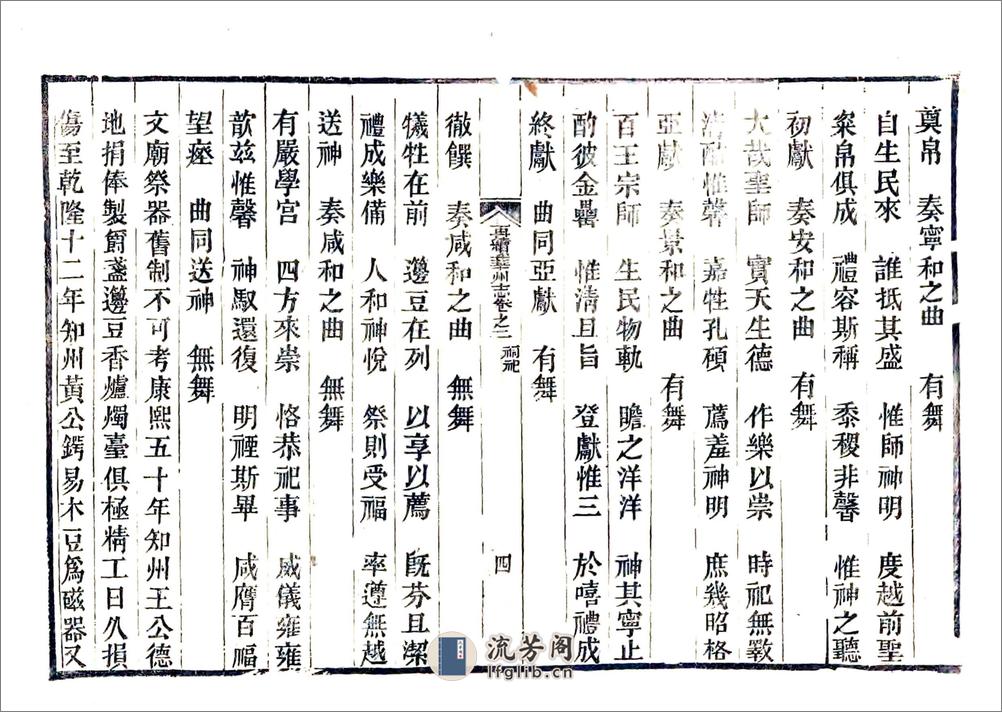 奠帛　奏寧和之曲　有舞
自生民來　誰抵其盛　惟師神明　度越前聖
粢帛俱成　禮容斯稱　黍稷非馨　惟神之聽
初獻　奏安和之曲　有舞
大哉聖師　實天生德　作樂以崇　時祀無斁
清酤惟馨　嘉牲孔碩　薦羞神明　庶幾昭格
亞獻　奏景和之曲　有舞
百王宗師　生民物軌　瞻之洋洋　神其寧止
酌彼金罍　惟淸且旨　登獻惟三　於嘻禮成
終獻　曲同亞獻　有舞
再續華州志卷之三　祠祀　四
徹饌　奏咸和之曲　無舞
犧牲在前　籩豆在列　以享以薦　旣芬且潔
禮成樂備　人和神悅　祭則受福　率遵無越
送神　奏咸和之曲　無舞
有嚴學宮　四方來崇　恪恭祀事　威儀雍雍
歆茲惟馨　神馭還復　明禋斯畢　咸膺百福
望瘞　曲同送神　無舞
文廟祭器舊制不可考康熙五十年知州王公德
地捐俸製爵盞籩豆香爐燭臺俱極精工日久損
傷至乾隆十二年知州黃公鍔易木豆爲磁器又
流芳阁
lfglib.cn